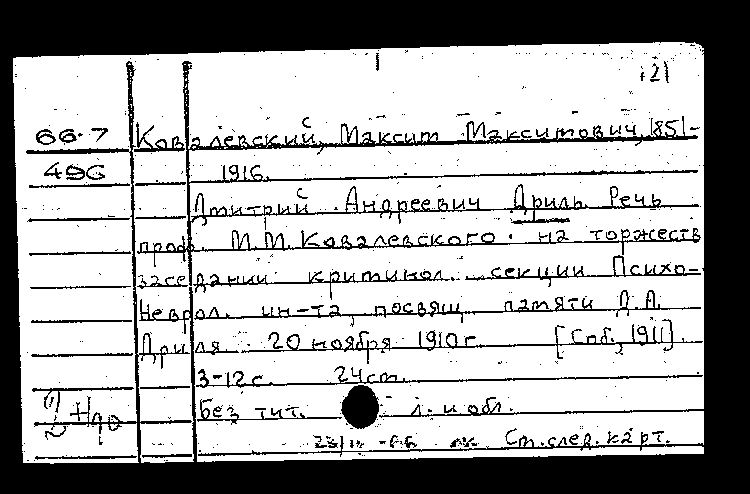 121
66.7 Ковалевский, Максим Максимович, 1851-
496 1916.
Дмитрий Андреевич Дриль Речь
проф. М.М. Ковалевского на торжеств
заседании криминол. секции Психо-
Неврол. ин-та, посвящ. памяти Д.А.
Дриля 20 ноября 1910 г. [Спб., 1911].
3-12 с. 24 см.
Без тит. л. и обл.
Ст. след. карт.